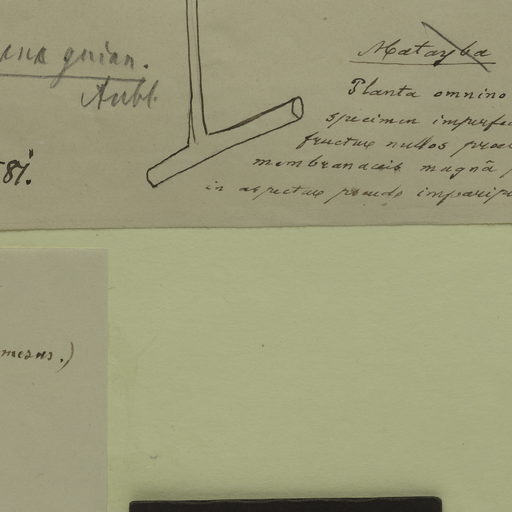 guian.
Aubl.
81.
Matayba
Planta omnino
specimen imperfec
fructus nullos prae
membranaceis magnâ
in aspectus pseudo imparip
mesns.)